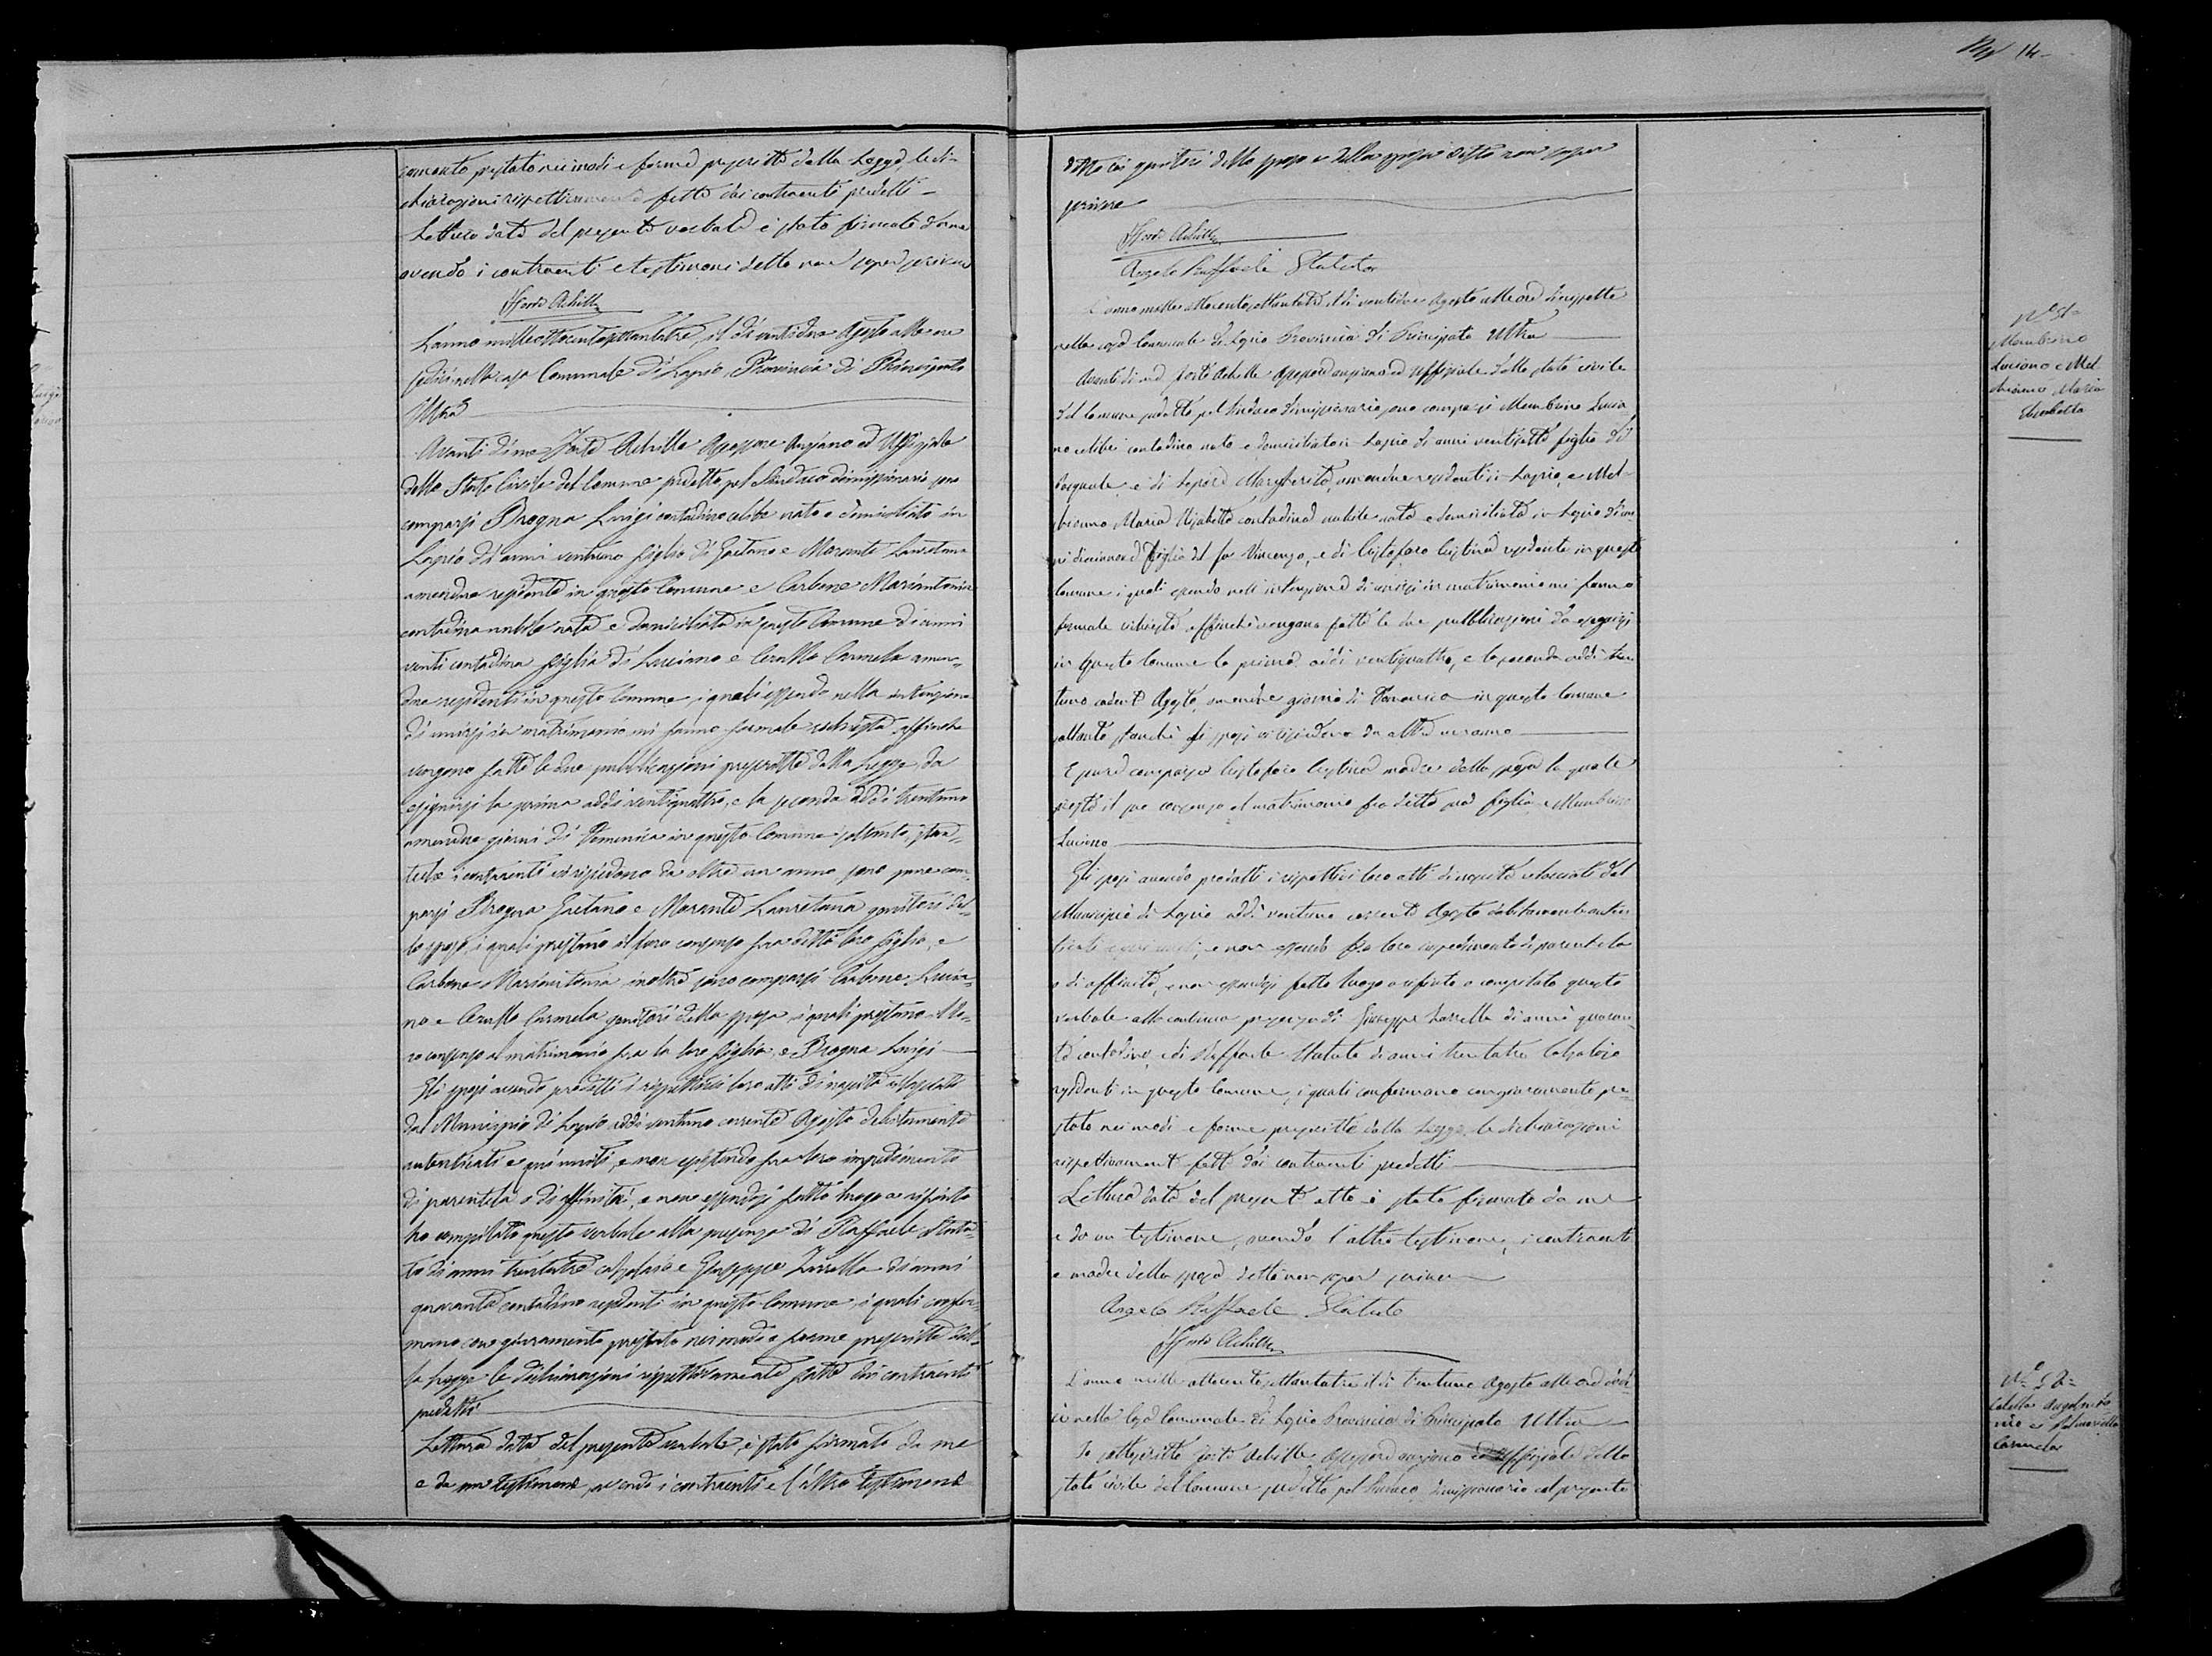 Nº 14
ramento prestato nei modi e forme prescritte dalla Legge, le di-
chiarazioni rispettivamente fatte dai contraenti predetti -
Lettura data del presente verbale è stato firmato da me
avendo i contraenti e testimoni detto non saper scrivere
Forte Achille
L'anno milleottocentosettantatre, il dì ventidue Agosto alle ore
sedici nella casa Comunale di Lapio, Provincia di Principato
Ultra
Avanti di me Forte Achille Assessore anziano ed Uffiziale
dello Stato Civile del Comune predetto pel Sindaco dimissionario sono
comparsi Brogna Luigi contadino celibe nato e domiciliato in
Lapio di anni ventuno figlio di Gaetano e Morante Lauretana
amendue residenti in questo Comune e Carbone Mariantonia
contadina nubile nata e domiciliata in questo Comune di anni
venti contadina figlia di Luciano e Carmela amen-
due residenti in questo Comune, i quali essendo nella intenzione
di unirsi in matrimonio mi fanno formale richiesta affinche
vengano fatte le due pubblicazioni prescritte dalla Legge da
eseguirsi la prima addì ventiquattro, e la seconda addì trentuno
amendue giorni di Domenica in questo Comune soltanto, stan-
teche i contraenti vi risiedono da oltre un anno sono pure com-
parsi Brogna Gaetano e Morante Lauretana genitori del-
lo sposo, i quali prestano il loro consenso fra detto loro figlio, e
Carbone Mariantonia inoltre sono comparsi Carbone Lucia-
no e Carmela genitori della sposa i quali prestano il lo-
ro consenso al matrimonio fra la loro figlia, e Brogna Luigi
Gli sposi avendo prodotti i rispettivi loro atti di nascita rilasciati
dal Municipio di Lapio addì ventuno corrente Agosto debitamente
autenticati e qui uniti, e non esistendo fra loro impedimento
di parentela o di affinità, e non essendosi fatto luogo a rifiuto
ho compilato questo verbale alla presenza di Raffaele Statu-
to di anni trentatre calzolaio e Giuseppe Zarrella di anni
quaranta contadino residenti in questo Comune, i quali confer-
mano con giuramento prestato nei modi e forme prescritte dal-
la Legge le dichiarazioni rispettivamente fatte dai contraenti
predetti
Lettura data del presente verbale, è stato firmato da me
e da un testimone, avendo i contraenti e l'altro testimone
detto coi genitori dello sposo e della sposa detto non saper
scrivere
Forte Achille
Angelo Raffaele Statuto
L'anno mille ottocento settantatre il dì ventidue Agosto alle ore diciassette
nella casa Comunale di Lapio Provincia di Principato Ultra
Avanti di me Forte Achille Assessore anziano ed Uffiziale dello stato civile
del Comune predetto pel Sindaco dimissionario sono comparsi Membrino Lucia-
no celibe contadino nato e domiciliato in Lapio di anni ventisette figlio di
Pasquale, e di Lepore Margherita, amendue residenti in Lapio, e Mel-
chionno Maria Elisabetta contadina nubile nata e domiciliata in Lapio di an-
ni diecinove figlia del fu Vincenzo, e di Cristofaro Cristina residente in questo
Comune i quali essendo nell'intenzione di unirsi in matrimonio mi fanno
formale richiesta affinchè vengano fatte le due pubblicazioni da eseguirsi
in questo Comune la prima addì ventiquattro, e la seconda addì tren-
tuno cadente Agosto, amendue giorni di Domenica in questo Comune
soltanto stanchè gli sposi vi risiedono da oltre un anno
E pure comparsa Cristofaro Cristina madre della sposa la quale
presta il suo consenso al matrimonio fra detta sua figlia e Membrino
Luciano
Gli sposi avendo prodotti i rispettivi loro atti di nascita rilasciati dal
Municipio di Lapio addì ventuno corrente Agosto debitamente auten-
ticati e qui uniti, e non essendo fra loro impedimento di parentela
o di affinità, e non essendosi fatto luogo a rifiuto o compilato questo
verbale alla continua presenza di Giuseppe Zarrella di anni quaran-
ta contadino, e di Raffaele Statuto di anni trentatre Calzolaio
residenti in questo Comune, i quali confermano con giuramento pre-
stato nei modi e forme prescritte dalla Legge, le dichiarazioni
rispettivamente fatte dai contraenti predetti
Lettura data del presente atto è stato firmato da me
e da un testimone, avendo l'altro testimone, i contraenti
e madre della sposa detto non saper scrivere
Angelo Raffaele Statuto
Forte Achille
L'anno mille ottocento settantatre il dì trentuno Agosto alle ore dodi-
ci nella Casa Comunale di Lapio Provincia di Principato Ultra
Io sottoscritto Forte Achille Assessore anziano ed Uffiziale dello
stato civile del Comune predetto pel Sindaco dimissionario col presente
Membrino
Luciano e Mel-
chionno Maria
Elisabetta
Carmela